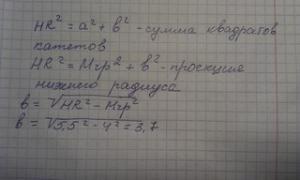 HR² = a² + b² - сумма квадратов
катетов
HR² = Mrp² + b² - проекция
нижнего радиуса
b = √HR² - Mrp²
b = √5,5² - 4² = 3,7